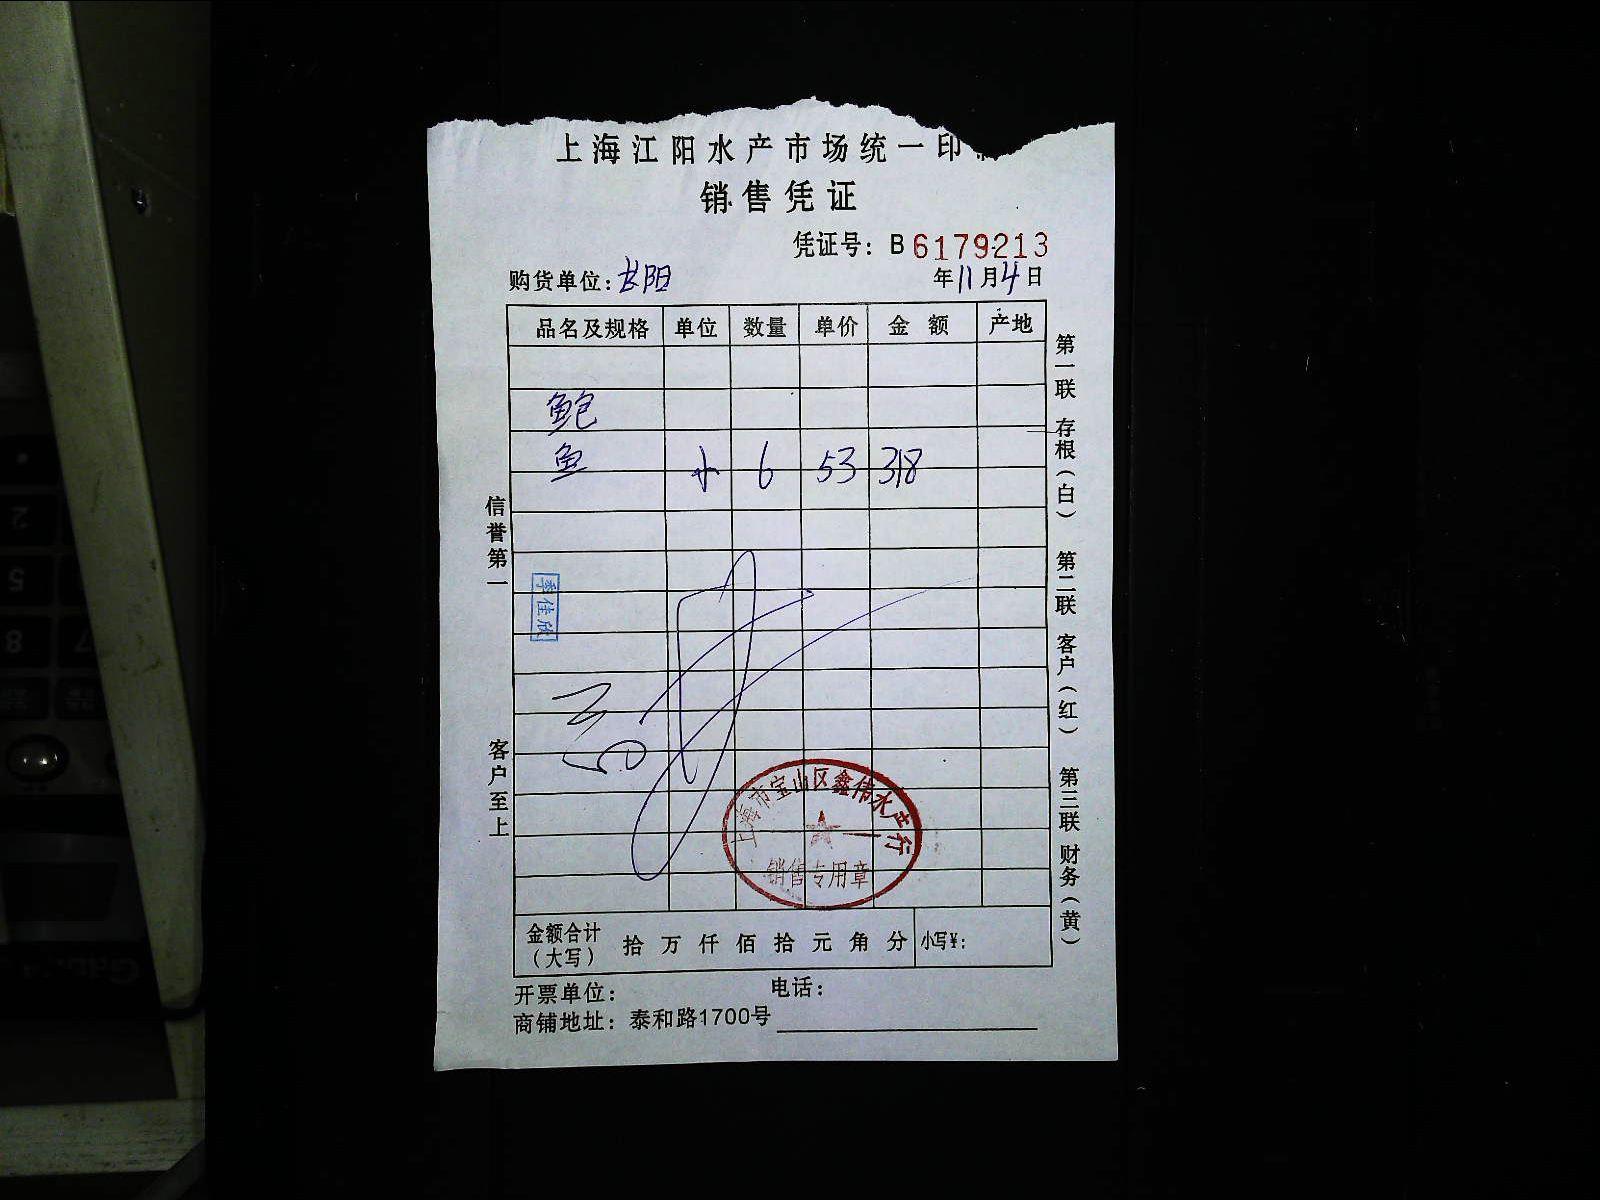 上海江阳水产市场统一印
销售凭证
凭证号：B6179213
购货单位：长阳 年11月4日
品名及规格 单位 数量 单价 金额 产地
鲍
鱼 6 53 318
信誉第一
客户至上
第一联 存根（白） 第二联 客户（红） 第三联 财务（黄）
季佳欣
上海市宝山区鑫伟水产行
销售专用章
金额合计（大写） 拾万仟佰拾元角分 小写¥：
开票单位： 电话：
商铺地址：泰和路1700号